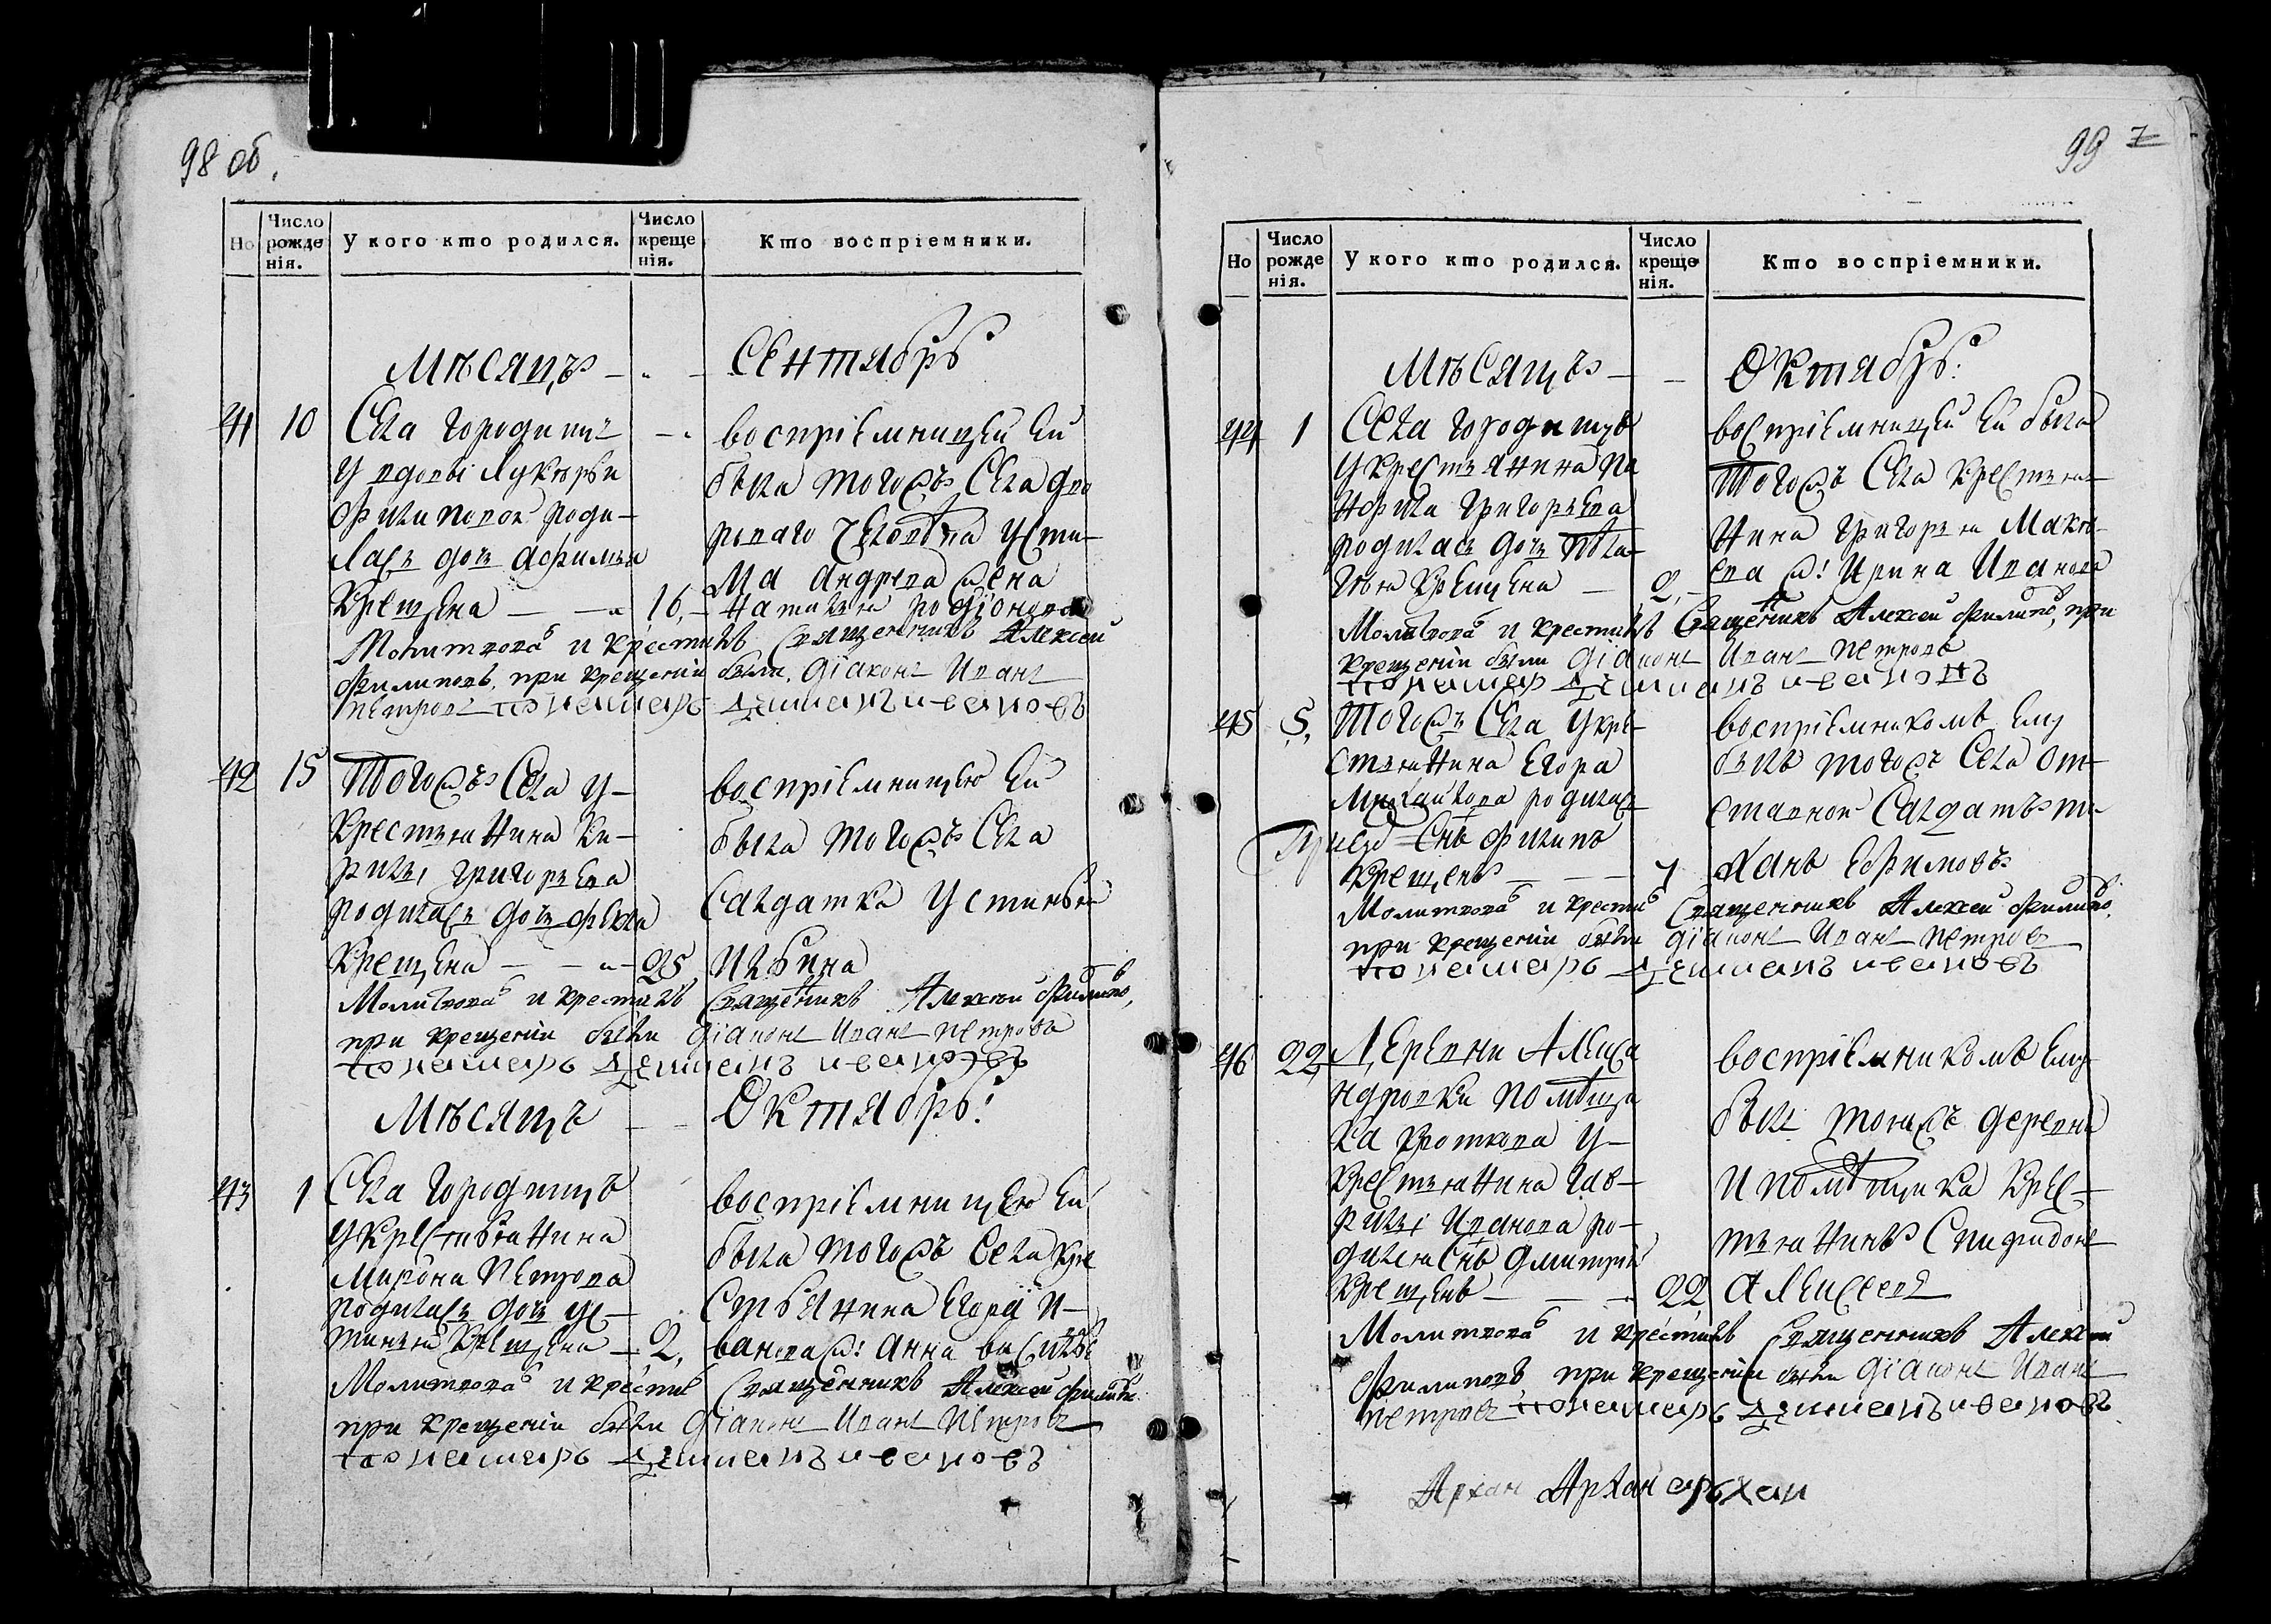 98 об.
Но
Число рожденія.
У кого кто родился.
Число крещенія.
Кто воспріемники.
Мѣсяцъ - - Сентябрь
41 10 Села Городищъ
у вдовы Лукерьи
Филиповой роди-
лась дочь Афимья
Крещена - - 16,
воспріемницей ей
была тогожъ Села дво
роваго человѣка Усти-
ма Андреева жена
Наталья Родіонова
Молитвовалъ и крестилъ Священникъ Алексей
Филиповъ, при крещеніи были, діаконъ Иванъ
Петровъ пономарь Демианъ ивановъ
42 15 Тогожъ Села у-
крестьянина Ки-
рилы Григорьева
родилась дочь Фекла
Крещена - - 25,
воспріемницею ей
была тогожъ Села
Салдатка Устинья
Ильина
Молитвовалъ и крестилъ Священникъ Алексѣй Филипо,
при крещеніи были діаконъ Иванъ Петровъ
пономарь Демианъ ивановъ
Мѣсяцъ - - Октябрь:
43 1 Села Городищъ
у крестьянина
Мирона Петрова
родилась дочь Ус-
тинья Крещена - 2,
воспріемницею ей
была тогожъ Села кре
стьянина Егора И-
ванова ж: Анна Василье
Молитвовалъ и крестилъ Священникъ Алексей Филипо
при крещеніи были діаконъ Иванъ Петровъ
пономарь Демианъ ивановъ
99 7
Но
Число рожденія.
У кого кто родился.
Число крещенія.
Кто воспріемники.
Мѣсяцъ - - Октябрь:
44 1 Села Городищъ
у крестьянина Па
нфила Григорьева
родилась дочь Пела-
гѣя Крещена - 2,
воспріемницей ей была
тогожъ Села крестья-
нина Григорья Макѣ-
ева ж: Ирина Иванова
Молитвовалъ и крестилъ Священникъ Алексеи Филипо, при
крещеніи были діаконъ Иванъ Петровъ
пономар Демианъ ивановъ
45 5, Тогожъ Села у кре-
стьянина Егора
Михайлова родился
Снъ Филипъ
Крещенъ - - 7
воспріемникомъ ему
былъ тогожъ Села От-
ставной Салдатъ
Ефимовъ
Молитвовалъ и крестилъ Священникъ Алексеи Филипо,
при крещеніи были діаконъ Иванъ Петровъ
пономарь Демианъ ивановъ
46 22, Деревни Алекса
ндровки помѣщи
ка Кроткова у-
крестьянина Гав-
рилы Иванова ро-
дился Снъ Дмитрій
Крещенъ - - 22
воспріемникомъ ему
былъ тоежъ деревни
и помѣщика Крес-
тьянинъ Спиридонъ
Алексеевъ
Молитвовалъ и крестилъ Священникъ Алексѣй
Филиповъ при крещеніи были діаконъ Иванъ
Петровъ пономарь Демианъ ивановъ
Архан Архан архан